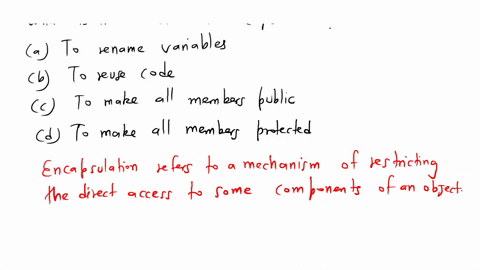 (a) To rename variables
(b) To reuse code
(c) To make all members public
(d) To make all members protected
Encapsulation refers to a mechanism of restricting
the direct access to some components of an object.